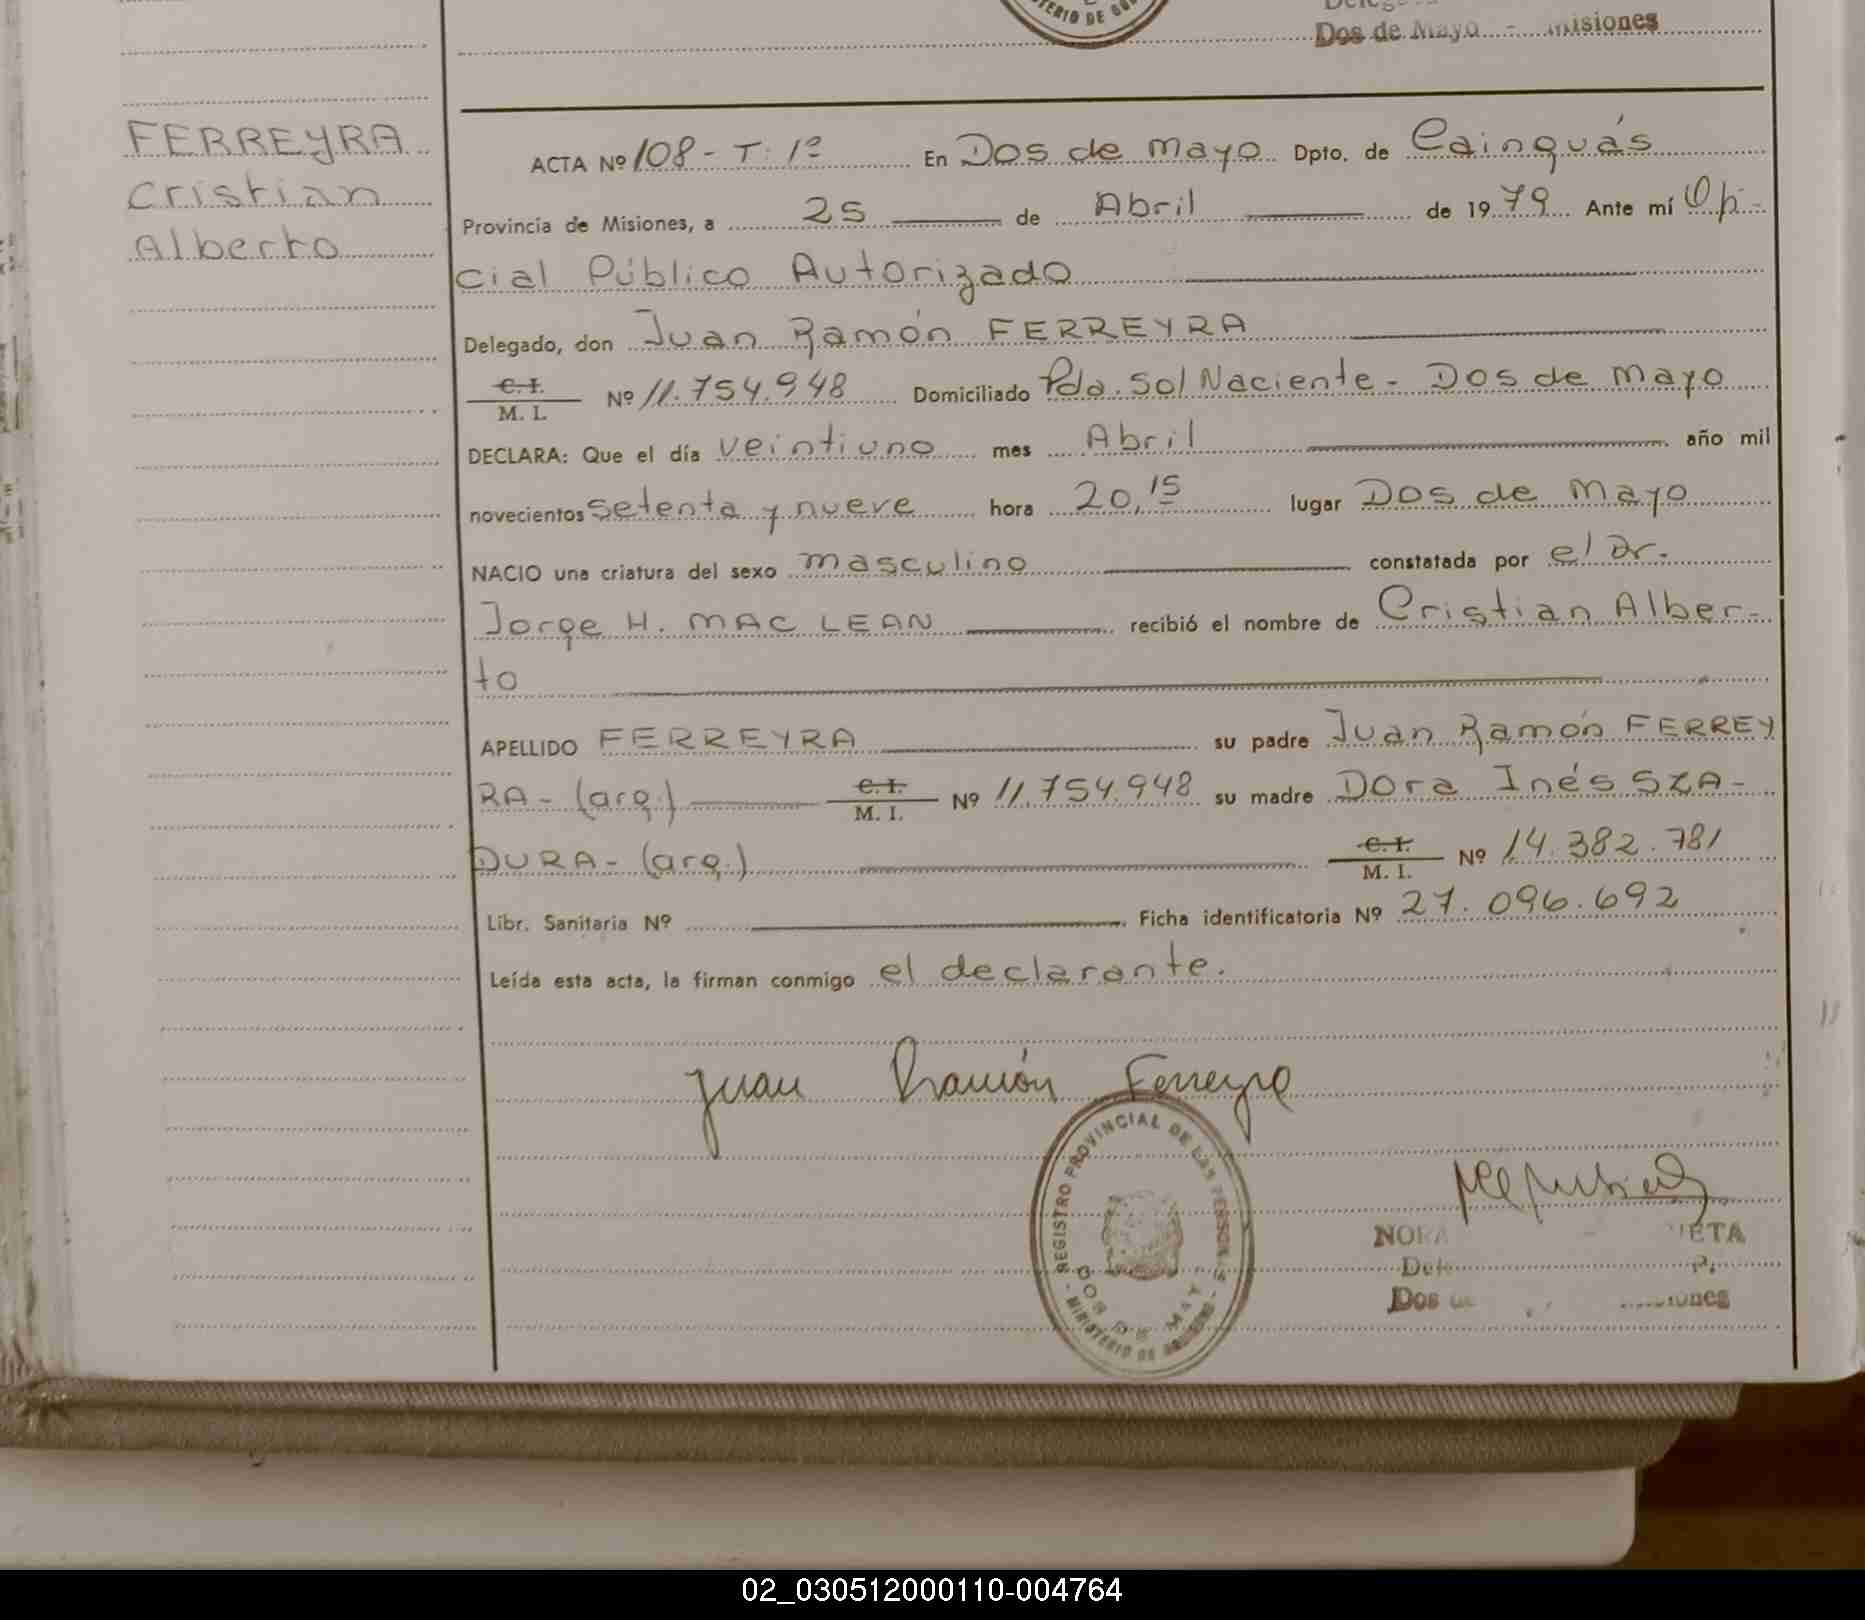 MINISTERIO DE
Dos de Mayo - Misiones
FERREYRA
Cristian
Alberto
ACTA Nº 108 - T: 1º En Dos de Mayo Dpto. de Cainguás
Provincia de Misiones, a 25 de Abril de 1979 Ante mí Ofi-
cial Público Autorizado
Delegado, don Juan Ramón FERREYRA
C. I.
M. I. Nº 11.754.948 Domiciliado Pda. Sol Naciente - Dos de Mayo
DECLARA: Que el día veintiuno mes Abril año mil
novecientos setenta y nueve hora 20,15 lugar Dos de Mayo
NACIO una criatura del sexo masculino constatada por el Dr.
Jorge H. MAC LEAN recibió el nombre de Cristian Alber-
to
APELLIDO FERREYRA su padre Juan Ramón FERREY
RA - (arg.) C. I. M. I. Nº 11.754.948 su madre Dora Inés SZA-
DURA - (arg.) C. I. M. I. Nº 14.382.781
Libr. Sanitaria Nº Ficha identificatoria Nº 27.096.692
Leída esta acta, la firman conmigo el declarante.
Juan Ramón Ferreyra
REGISTRO PROVINCIAL DE LAS PERSONAS
DOS DE MAYO
MINISTERIO DE GOBIERNO
NORA
Dos
02_030512000110-004764